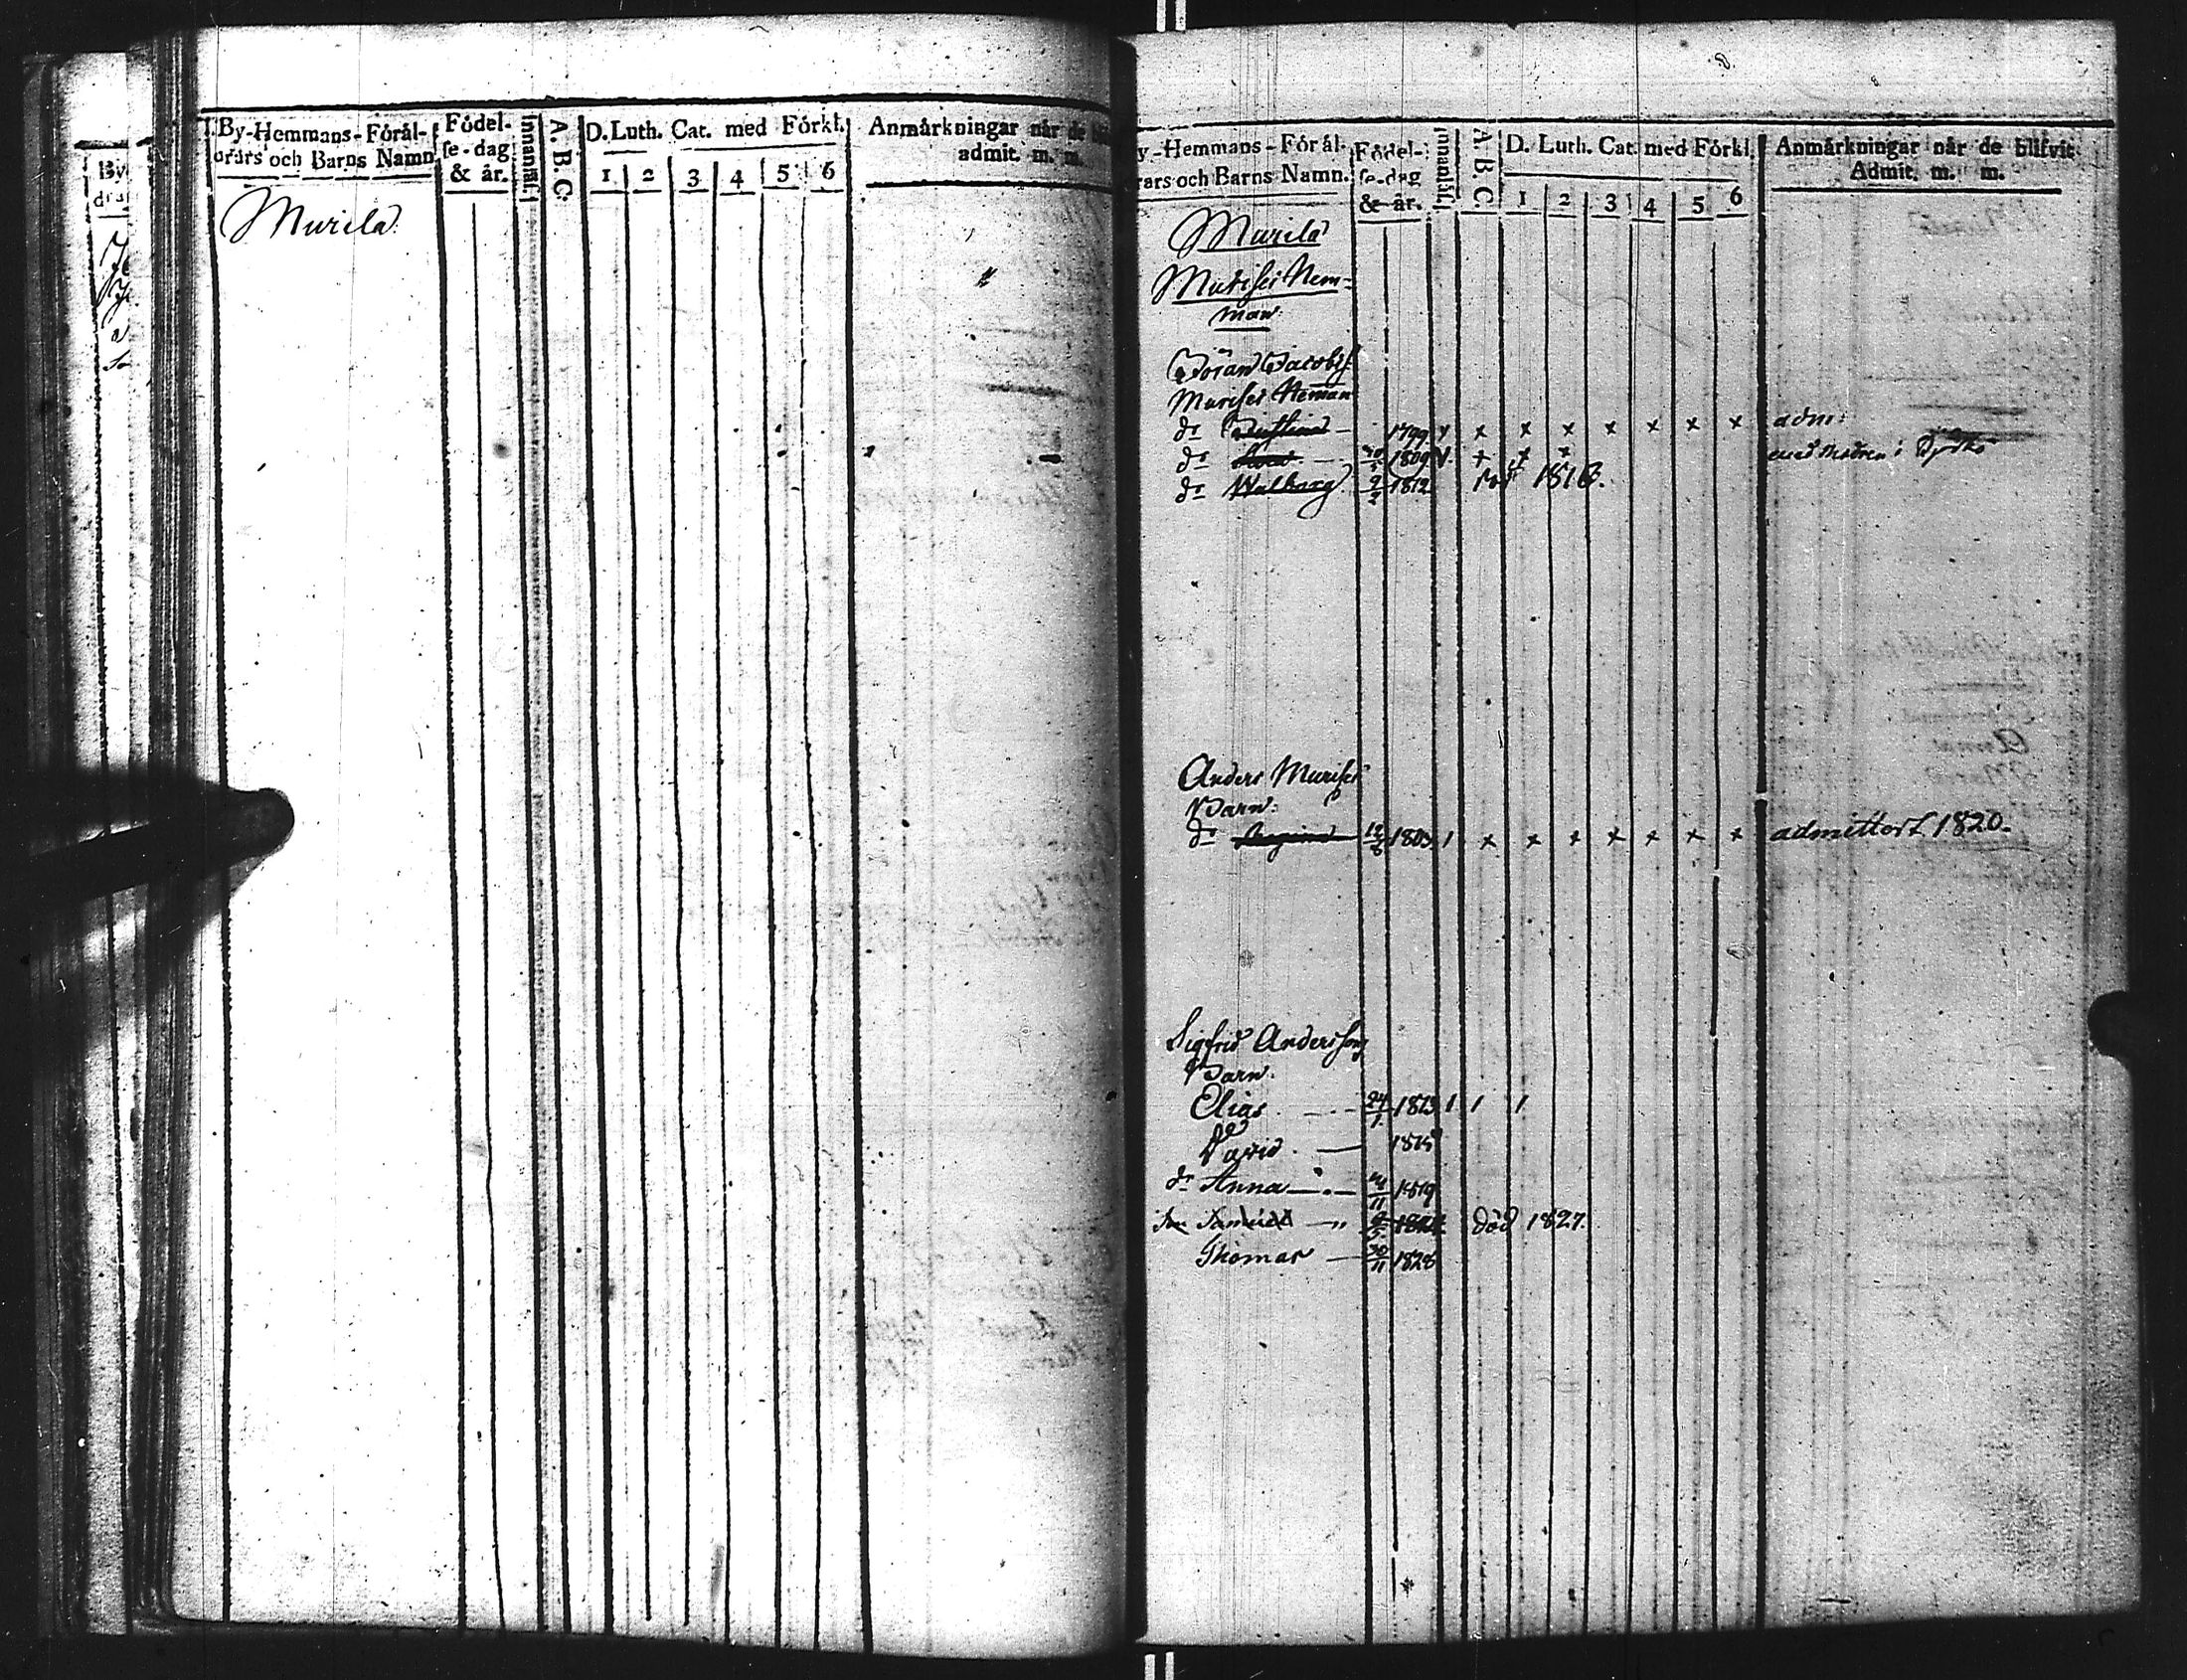 By-Hemmans-Förål-
drars och Barns Namn
Födel-
se-dag
& år.
Innanläs.
A. B. C.
D. Luth. Cat. med Förkl.
1 2 3 4 5 6
Anmärkningar när de
admit. m. m.
Murila
By
-Hemmans-Förål-
rars och Barns Namn.
Födel-
se-dag
& år.
Innanläs.
A B C.
D. Luth. Cat. med Förkl.
1 2 3 4 5 6
Anmärkningar når de blifvit
Admit. m. m.
Murila
Murisei Hem-
man
Jöran Jacobss.
Murisei Heman
dr 1799 x x x x x x x adm:
dr 1809 x x x med modren i
dr Walborg 9/2 1812 död 1816.
Anders Murisei
Barn:
dr Regina 12/8 1803 1 x x x x x x x admittert 1820.
Sigfrid Anderssons
Barn.
Elias 24/1 1813 1 1 1
David 1815
dr Anna 11 1819
Son Samuel död 1827.
Thomas 30/11 1828